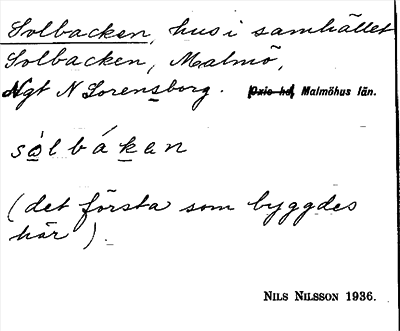 Solbacken, hus i samhället
Solbacken, Malmö,
Ngt N Lorensborg. Oxie hd, Malmöhus län.
sòlbákan
(det första som byggdes
här).
NILS NILSSON 1936.